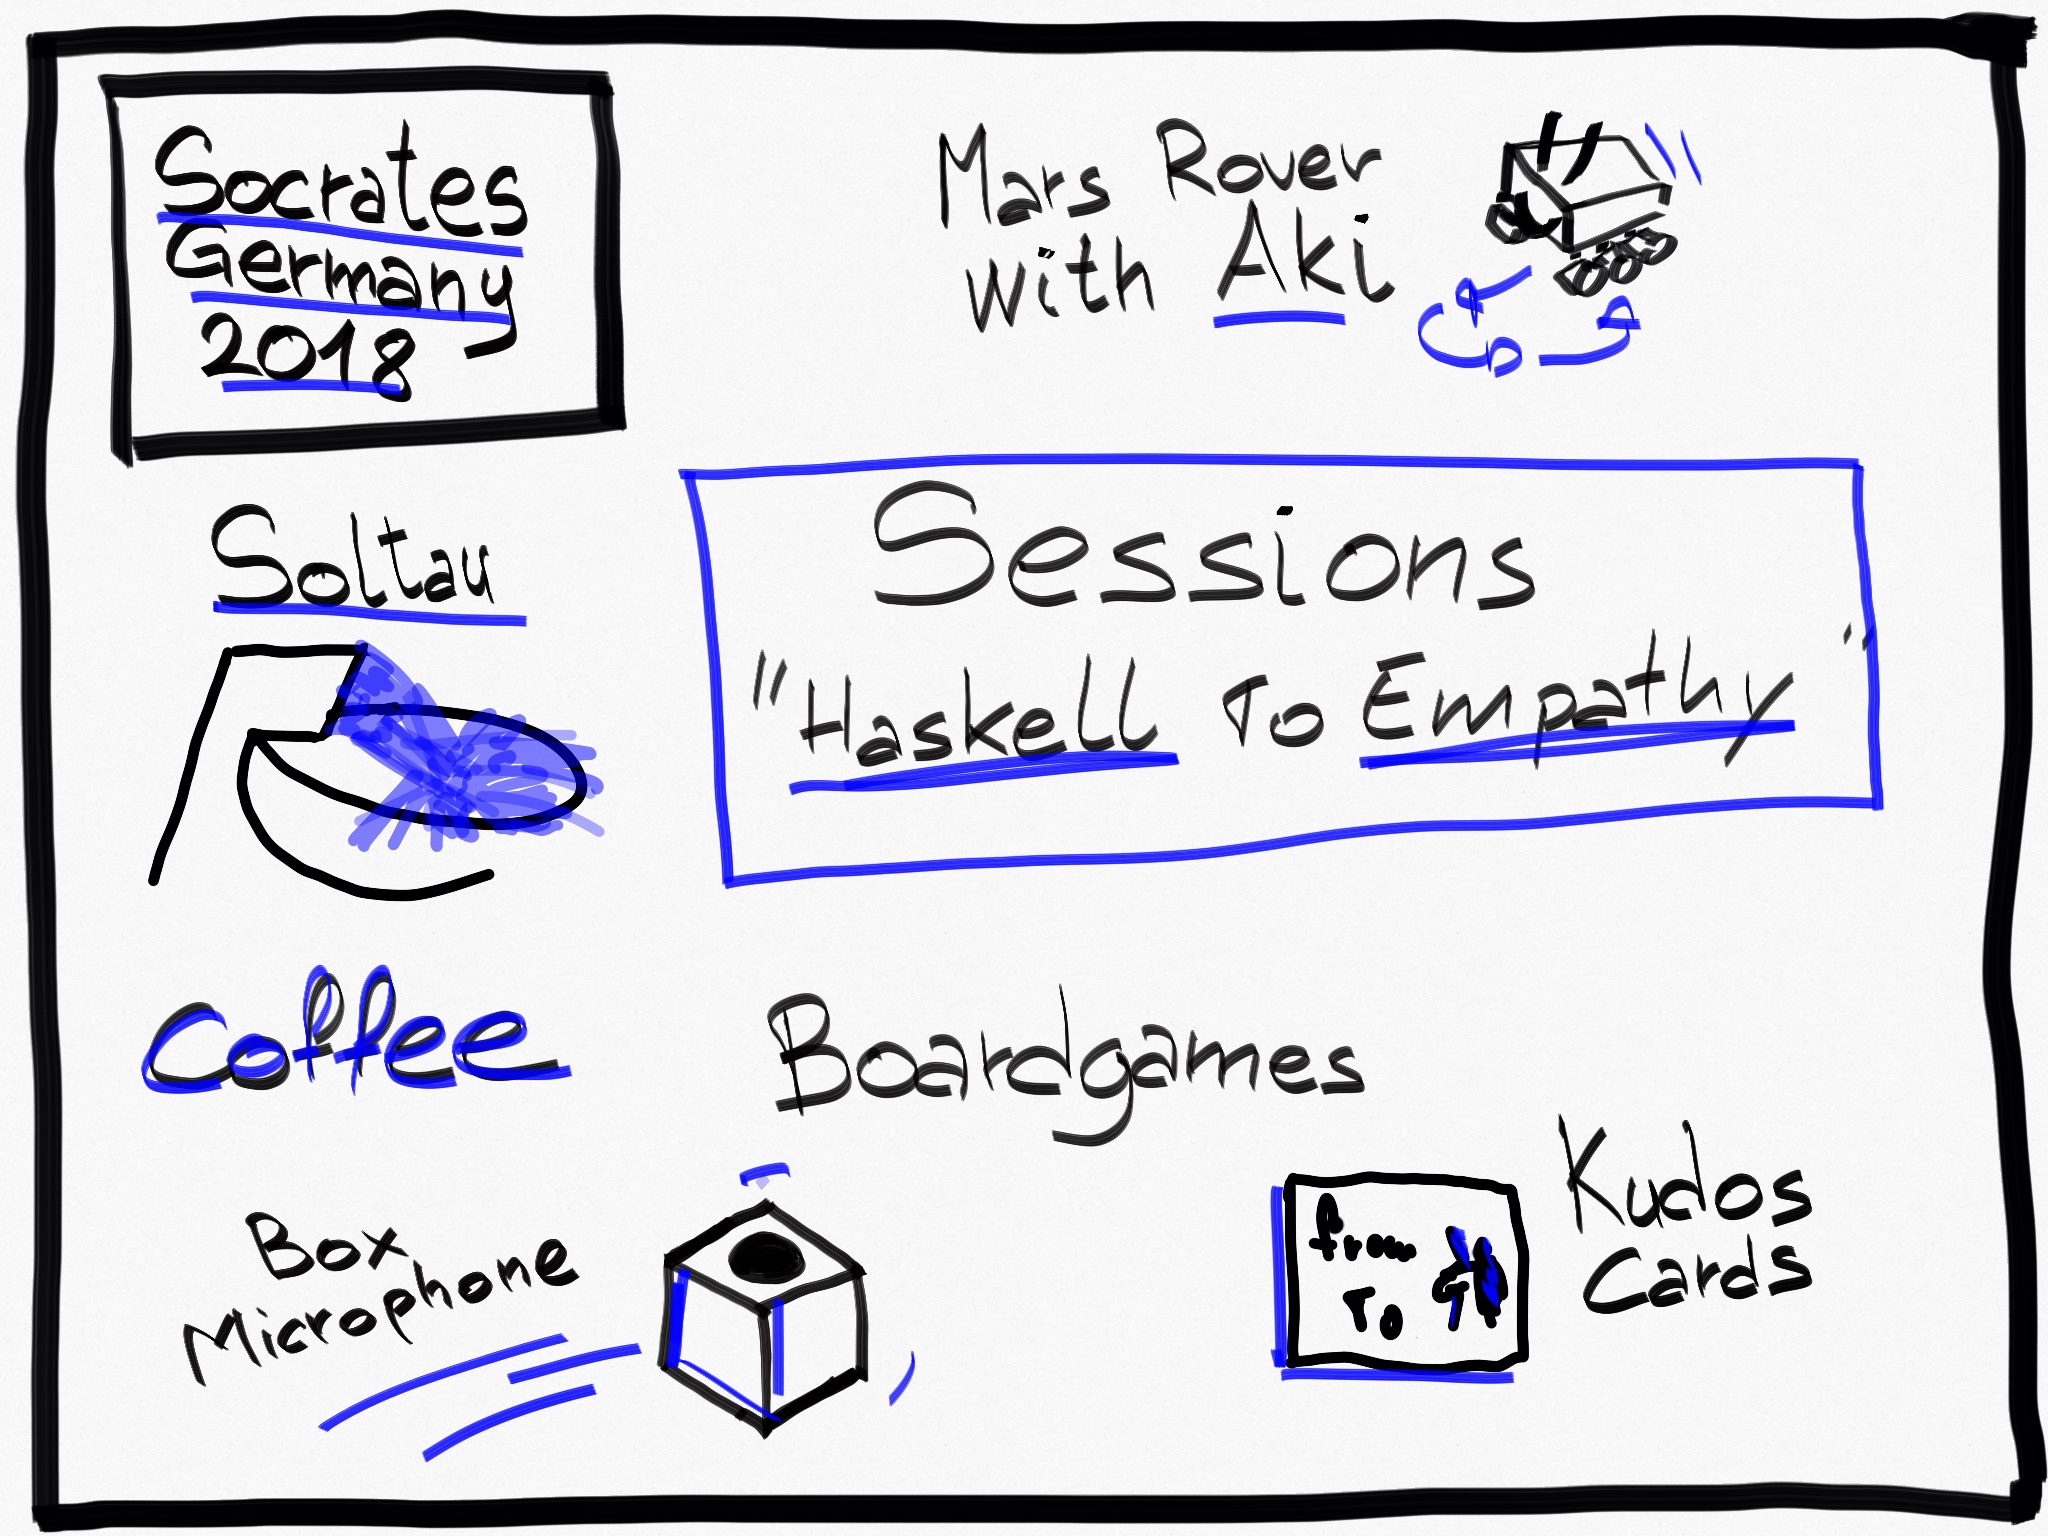 Socrates
Germany
2018
Mars Rover
with Aki
Soltau
Sessions
"Haskell To Empathy"
Coffee
Boardgames
Box
Microphone
from
To
Kudos
Cards